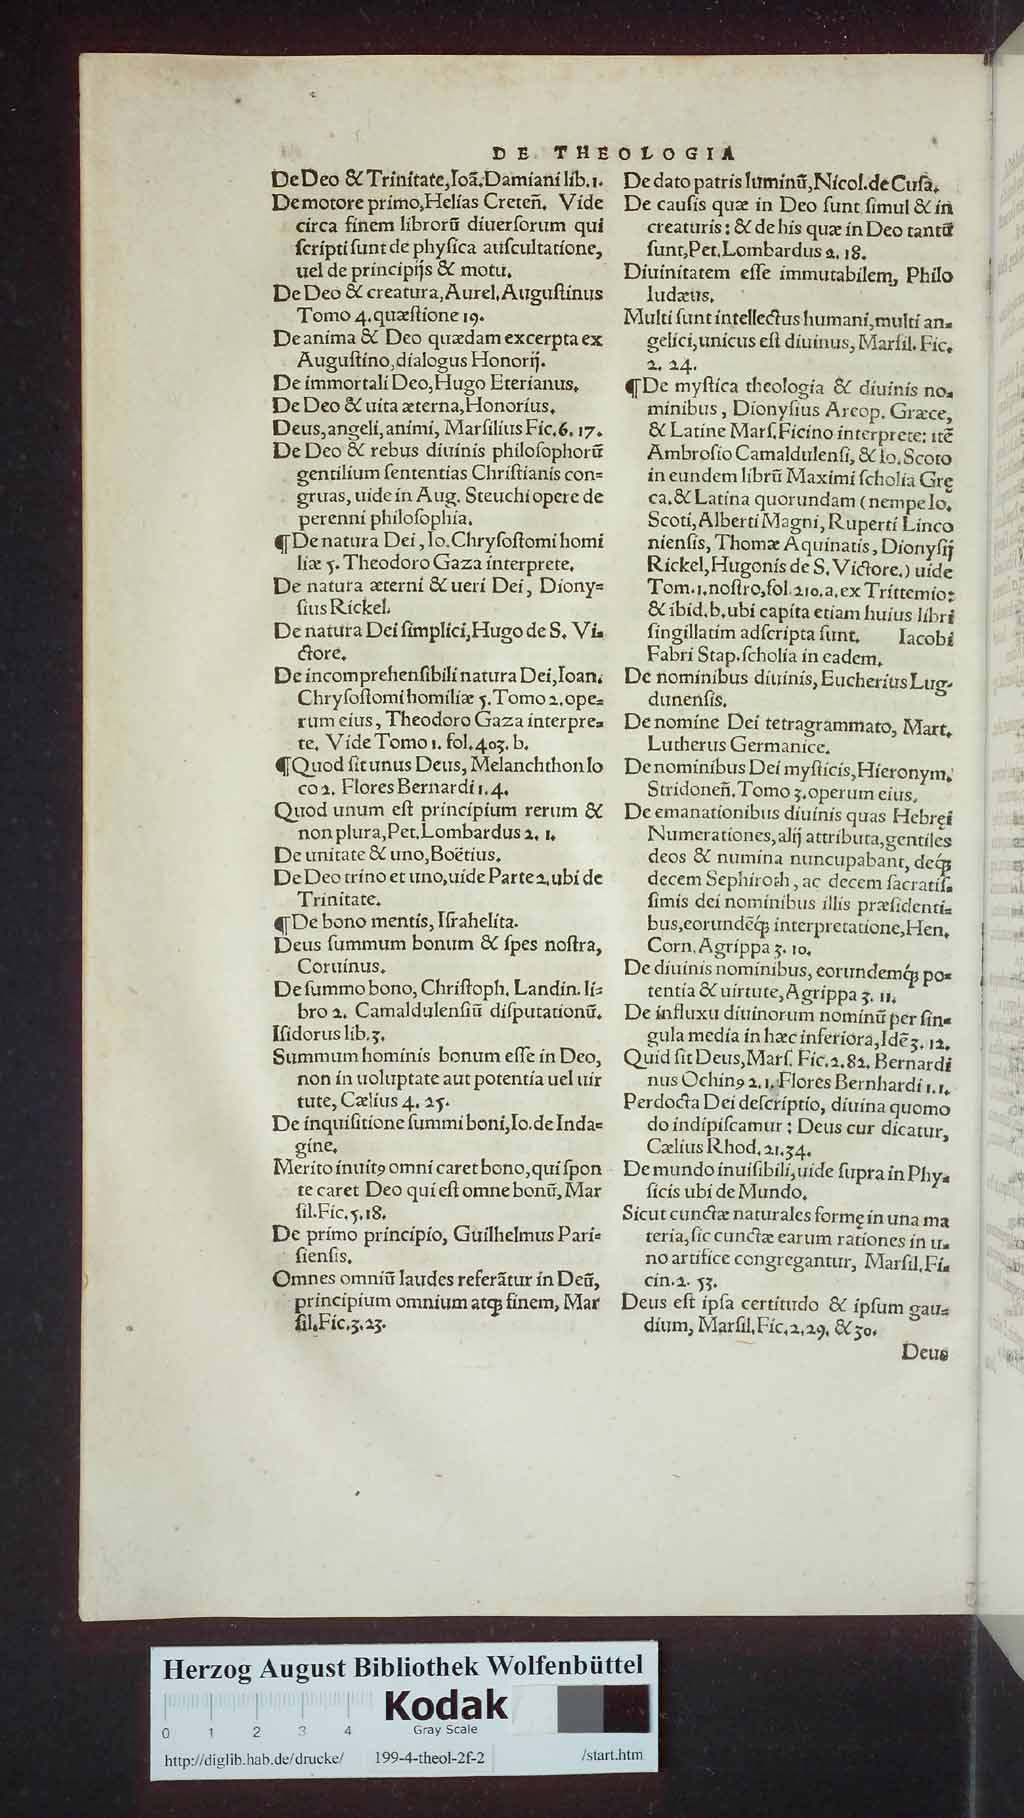 DE THEOLOGIA
De Deo & Trinitate, Ioã. Damiani lib. 1.
De motore primo, Helias Creteñ. Vide
circa finem librorũ diuerſorum qui
ſcripti ſunt de phyſica auſcultatione,
uel de principijs & motu.
De Deo & creatura, Aurel. Auguſtinus
Tomo 4. quæſtione 19.
De anima & Deo quædam excerpta ex
Auguſtino, dialogus Honorij.
De immortali Deo, Hugo Eterianus.
De Deo & uita æterna, Honorius.
Deus, angeli, animi, Marſilius Fic. 6. 17.
De Deo & rebus diuinis philoſophorũ
gentilium ſententias Chriſtianis con⸗
gruas, uide in Aug. Steuchi opere de
perenni philoſophia.
¶ De natura Dei, Io. Chryſoſtomi homi
liæ 5. Theodoro Gaza interprete.
De natura æterni & ueri Dei, Diony⸗
ſius Rickel.
De natura Dei ſimplici, Hugo de S. Vi⸗
ctore.
De incomprehenſibili natura Dei, Ioan.
Chryſoſtomi homiliæ 5. Tomo 2. ope⸗
rum eius, Theodoro Gaza interpre⸗
te. Vide Tomo 1. fol. 403. b.
¶ Quod ſit unus Deus, Melanchthon lo
co 2. Flores Bernardi 1. 4.
Quod unum eſt principium rerum &
non plura, Pet. Lombardus 2. 1.
De unitate & uno, Boëtius.
De Deo trino et uno, uide Parte 2. ubi de
Trinitate.
¶ De bono mentis, Iſrahelita.
Deus ſummum bonum & ſpes noſtra,
Coruinus.
De ſummo bono, Chriſtoph. Landin. li⸗
bro 2. Camaldulenſiũ diſputationũ.
Iſidorus lib. 3.
Summum hominis bonum eſſe in Deo,
non in uoluptate aut potentia uel uir
tute, Cælius 4. 25.
De inquiſitione ſummi boni, Io. de Inda⸗
gine.
Merito inuitꝯ omni caret bono, qui ſpon
te caret Deo qui eſt omne bonũ, Mar
ſil. Fic. 5. 18.
De primo principio, Guilhelmus Pari⸗
ſienſis.
Omnes omniũ laudes referãtur in Deũ,
principium omnium atq́ꝫ finem, Mar
ſil. Fic. 3. 23.
De dato patris luminũ, Nicol. de Cuſa.
De cauſis quæ in Deo ſunt ſimul & in
creaturis: & de his quæ in Deo tantũ
ſunt, Pet. Lombardus 2. 18.
Diuinitatem eſſe immutabilem, Philo
Iudæus.
Multi ſunt intellectus humani, multi an⸗
gelici, unicus eſt diuinus, Marſil. Fic.
2. 24.
¶ De myſtica theologia & diuinis no⸗
minibus, Dionyſius Areop. Græce,
& Latine Marſ. Ficino interprete: itẽ
Ambroſio Camaldulenſi, & Io. Scoto
in eundem librũ Maximi ſcholia Grę
ca. & Latina quorundam (nempe Io.
Scoti, Alberti Magni, Ruperti Linco
nienſis, Thomæ Aquinatis, Dionyſij
Rickel, Hugonis de S. Victore.) uide
Tom. 1. noſtro, fol. 210. a. ex Trittemio:
& ibid. b. ubi capita etiam huius libri
ſingillatim adſcripta ſunt. Iacobi
Fabri Stap. ſcholia in eadem.
De nominibus diuinis, Eucherius Lug⸗
dunenſis.
De nomine Dei tetragrammato, Mart.
Lutherus Germanice.
De nominibus Dei myſticis, Hieronym.
Stridoneñ. Tomo 3. operum eius.
De emanationibus diuinis quas Hebręi
Numerationes, alij attributa, gentiles
deos & numina nuncupabant, deq́ꝫ
decem Sephiroth, ac decem ſacratiſ⸗
ſimis dei nominibus illis præſidenti⸗
bus, eorundẽq́ꝫ interpretatione, Hen.
Corn. Agrippa 3. 10.
De diuinis nominibus, eorundemq́ꝫ po⸗
tentia & uirtute, Agrippa 3. 11.
De influxu diuinorum nominũ per ſin⸗
gula media in hæc inferiora, Idẽ 3. 12.
Quid ſit Deus, Marſ. Fic. 2. 82. Bernardi
nus Ochinꝯ 2. 1. Flores Bernhardi 1. 1.
Perdocta Dei deſcriptio, diuina quomo
do indipiſcamur: Deus cur dicatur,
Cælius Rhod. 21. 34.
De mundo inuiſibili, uide ſupra in Phy⸗
ſicis ubi de Mundo.
Sicut cunctæ naturales formę in una ma
teria, ſic cunctæ earum rationes in u⸗
no artifice congregantur, Marſil. Fi⸗
cin. 2. 53.
Deus eſt ipſa certitudo & ipſum gau⸗
dium, Marſil. Fic. 2. 29. & 30.
Deus
Herzog August Bibliothek Wolfenbüttel
Kodak
Gray Scale
0 1 2 3 4
http://diglib.hab.de/drucke/ 199-4-theol-2f-2 /start.htm